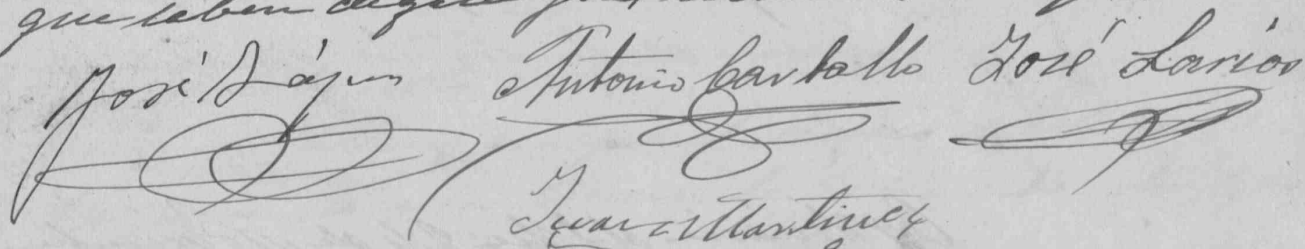 que saben
José Antonio Carballo José Larios
Juan Martinez